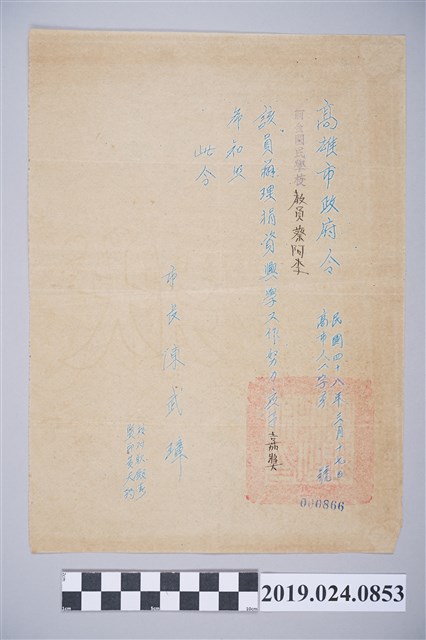 高雄市政府令
民國四十八年三月十九日
高市人八字第 號
000866
前金國民學校 教員蔡阿李
該員辦理捐資興學工作努力應予嘉獎
希知照
此令
市長陳武璋
2019.024.0853